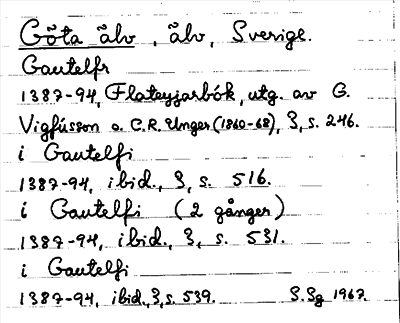 Göta älv, älv, Sverige.
Gautelfr
1387-94, Flateyjarbók, utg. av G.
Vigfússon o. C.R. Unger (1860-68), 3, s. 246.
i Gautelfi
1387-94, ibid., 3, s. 516.
i Gautelfi (2 gånger)
1387-94, ibid., 3, s. 531.
i Gautelfi
1387-94, ibid., 3, s. 539. S.Sg 1967.